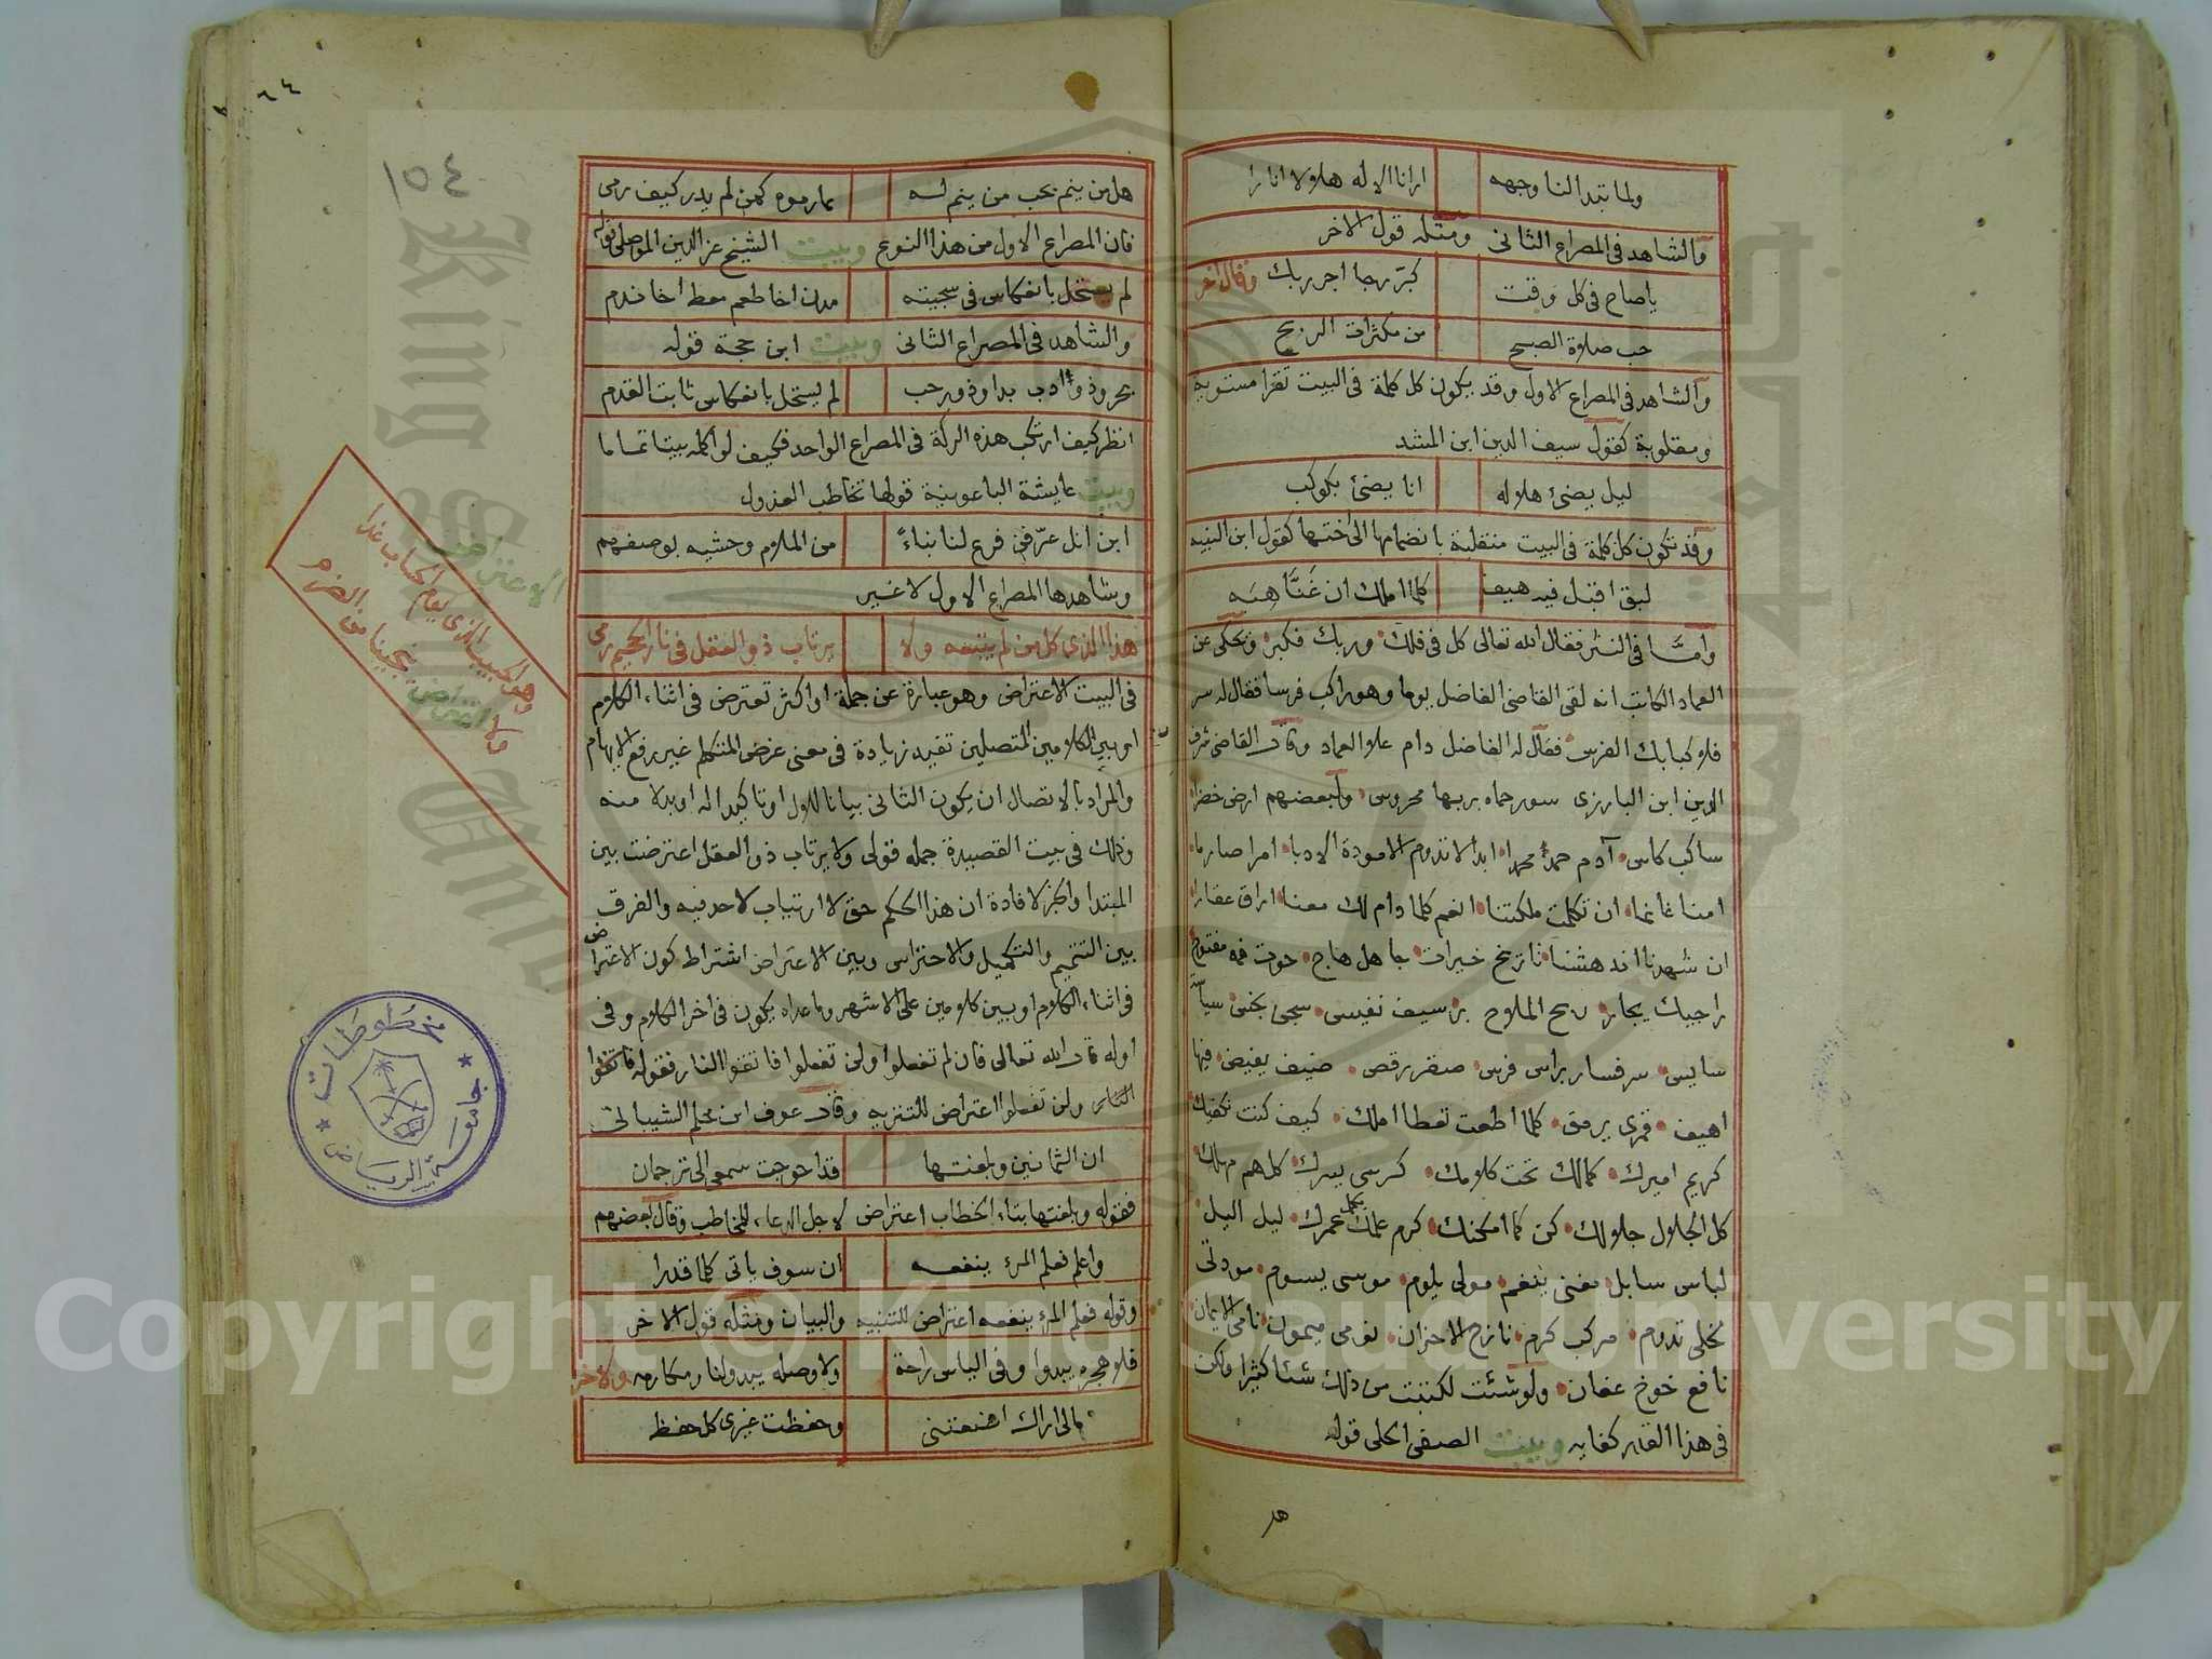 ولما تبدا لنا وجهه ارانا الاله هلالا انارا
والشاهد فى المصراع الثانى ومثله قول الاخر
ياصاح فى كل وقت كبر رجا اجر ربك وقال اخر
حب صلاة الصبح من مكثرات الربح
والشاهد فى المصراع الاول وقد يكون كل كلمة فى البيت تقرا مستوية
ومقلوبة كقول سيف الدين ابن المشد
ليل يضئ هلاله انا يضئ بكوكب
وقد تكون كل كلمة فى البيت منقلبة بانضمامها الى اختها كقول ابن النبيه
لبق اقبل فيه هيف كلما املك ان غنا هبه
وأمّا فى النثر فقال الله تعالى كل فى فلك وربك فكبر ويحكى عن
العماد الكاتب انه لقى القاضى الفاضل يوما وهو راكب فرسا فقال له سر
فلا كبا بك الفرس فقال له الفاضل دام علا العماد وقال القاضى شرف
الدين ابن البارزى سور حماه بربها محروس ولبعضهم ارض خضرا
ساكب كاس آدم حمدا محمدا ابدا لا تدوم الا مودة الادبا امرا صارما
امنا غانما ان تكلمت ملكتنا انعم كلما دام لك معنا اراق عقارا
ان شهدنا اندهشنا تاريخ خيرات جاهل هاج حوت فمه مفتوح
سايس سرفسار براس فرس صقر رقص ضيف يفيض فيها
اهيف قمرى يرمق كلما اطعت تعطا املك كيف كنت تكفيك
كريم اميرك كمالك تحت كلامك كرسى يسرك كلهم مهلك
كل الجلال جلالك كن كما امكنك كرم علمك يكمل عمرك ليل اليل
لباس سابل مغنى ينغم مولى يلوم موسى يسوم مودتى
لخلى تدوم مركب كرم نازح الاحزان يومى ميمون نامى الايمان
نافع خوخ عفان ولو شئت لكتبت من ذلك شئا كثيرا ولكن
فى هذا القدر كفايه وبيت الصفى الحلى قوله
هل
١٥٤
هل من ينم بحب من ينم له بما رموه كمن لم يدر كيف رمى
فان المصراع الاول من هذا النوع وبيت الشيخ عز الدين الموصلى قوله
لم يستحل بانعكاس فى سجيته مدن اخا طعم معط اخا ندم
والشاهد فى المصراع الثانى وبيت ابن حجة قوله
بحر وذو أدب بدا وذو رحب لم يستحل بانعكاس ثابت القدم
انظر كيف ارتكب هذه الركة فى المصراع الواحد فكيف لو اكمله بيتا تماما
وبيت عايشة الباعونية قولها تخاطب العذول
ابن انل عرّفن فرع لنا بناءً من الملام وحشيه بوصفهم
وشاهدها المصراع الاول لا غير
هذا الذى كل من لم يتبعه ولا يرتاب ذو العقل فى نار الجحيم رمى
فى البيت الاعتراض وهو عبارة عن جملة او اكثر تعترض فى اثناء الكلام
او بين الكلامين المتصلين تفيد زيادة فى معنى غرض المتكلم غير رفع الابهام
والمراد بالاتصال ان يكون الثانى بيانا للاول او تاكيدا له او بدلا منه
وذلك فى بيت القصيدة جمله قولى ولا يرتاب ذو العقل اعترضت بين
المبتدا والخبر لافادة ان هذا الحكم حق لا ارتياب لاحد فيه والفرق
بين التتميم والتكميل والاحتراس وبين الاعتراض اشتراط كون الاعتراض
فى اثناء الكلام او بين كلامين على الاشهر وما عداه يكون فى اخر الكلام وفى
اوله قال الله تعالى فان لم تفعلوا ولن تفعلوا فاتقوا النار فقوله فاتقوا
النار ولن تفعلوا اعتراض للتنزيه وقال عوف ابن محلم الشيبانى
ان الثمانين وبلغتها قد احوجت سمعى الى ترجمان
فقوله وبلغتها بتاء الخطاب اعتراض لاجل الدعاء للمخاطب وقال بعضهم
واعلم فعلم المرء ينفعه ان سوف ياتى كلما قدرا
وقوله فعلم المرء ينفعه اعتراض للتنبيه والبيان ومثله قول الاخر
فلا هجره يبدوا وفى الياس راحة ولا وصله يبدو لنا فنكارمه ولاخر
مالى اراك اضعتنى وحفظت غيرى كل حفظ
الاعتراض
وهو الحبيب الذى يوم الحساب غدا
ولا اعتراض ينجينا من الضرم
مخطوطات
جامعة الرياض
Copyright © King Saud University